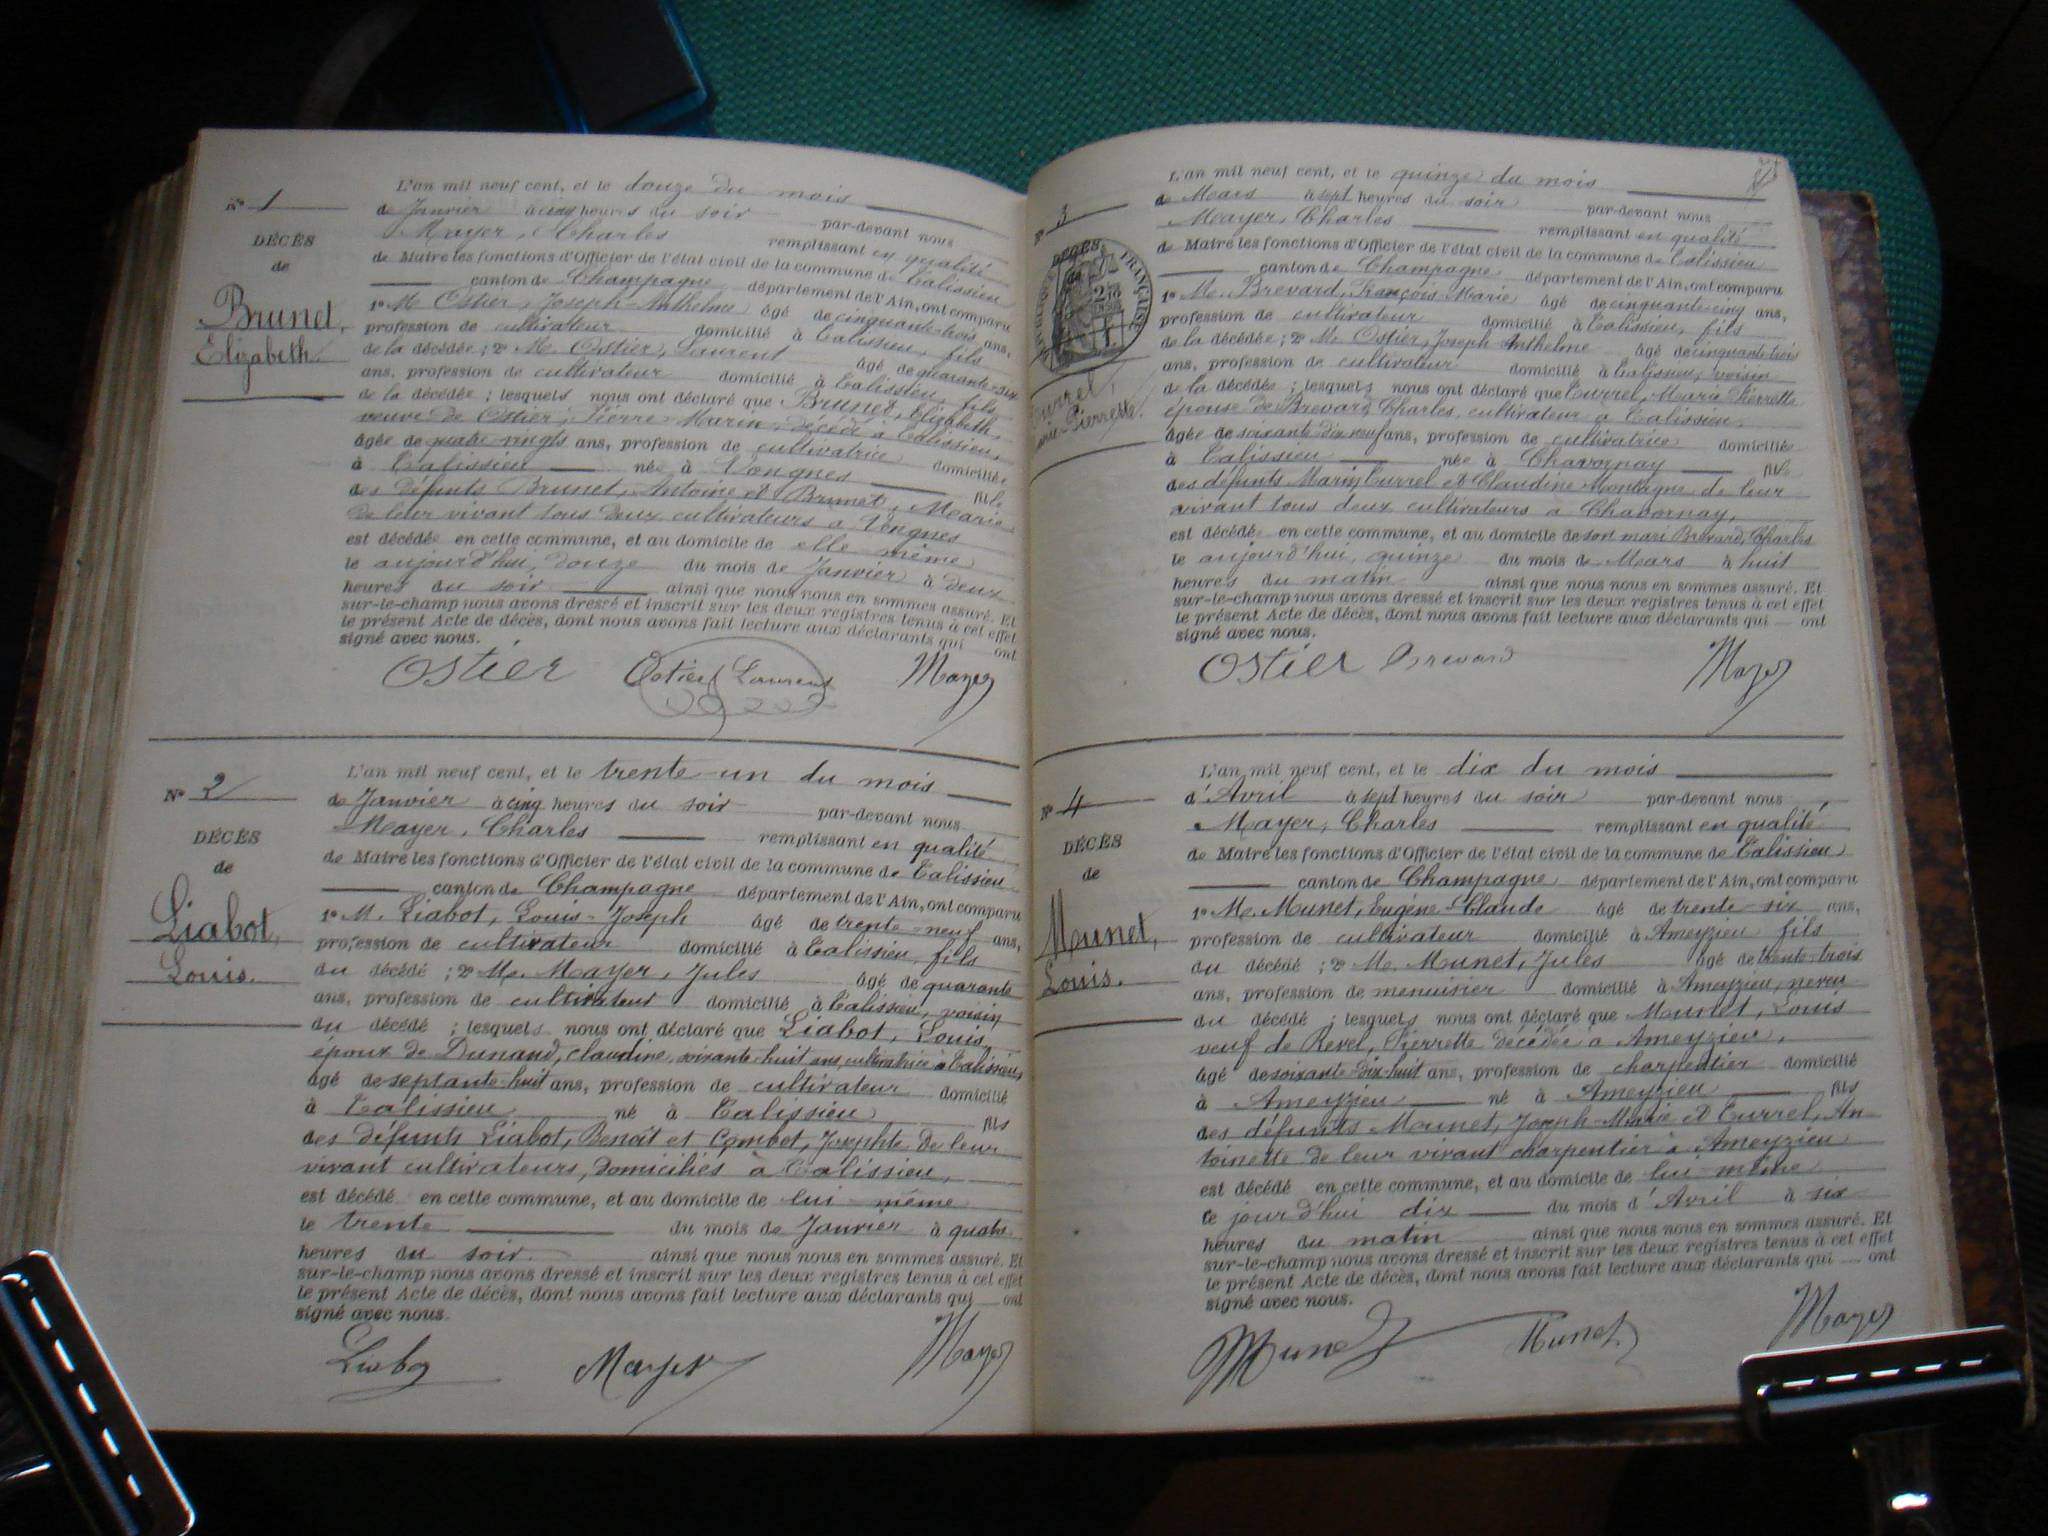 N° 1
DÉCÈS
de
Brunet,
Elizabeth.
L'an mil neuf cent, et le douze du mois
de Janvier à cinq heures du soir par-devant nous
Mayer, Charles remplissant en qualité
de Maire les fonctions d'Officier de l'état civil de la commune de Talissieu
canton de Champagne département de l'Ain, ont comparu
1° M. Ostier, Joseph-Anthelme âgé de cinquante-trois ans,
profession de cultivateur domicilié à Talissieu, fils
de la décédée ; 2° M. Ostier, Laurent âgé de quarante-six
ans, profession de cultivateur domicilié à Talissieu, fils
de la décédée ; lesquels nous ont déclaré que Brunet, Elizabeth,
veuve de Ostier, Pierre-Marin, décédé à Talissieu,
âgée de quatre-vingts ans, profession de cultivatrice domiciliée
à Talissieu née à Vongnes fille
des défunts Brunet, Antoine et Brunet, Marie
de leur vivant tous deux cultivateurs à Vongnes
est décédée en cette commune, et au domicile de elle même
le aujourd'hui, douze du mois de Janvier à deux
heures du soir ainsi que nous nous en sommes assuré. Et
sur-le-champ nous avons dressé et inscrit sur les deux registres tenus à cet effet
le présent Acte de décès, dont nous avons fait lecture aux déclarants qui ont
signé avec nous.
Ostier Ostier Laurent Mayer
N° 2
DÉCÈS
de
Liabot,
Louis.
L'an mil neuf cent, et le trente-un du mois
de Janvier à cinq heures du soir par-devant nous
Mayer, Charles remplissant en qualité
de Maire les fonctions d'Officier de l'état civil de la commune de Talissieu
canton de Champagne département de l'Ain, ont comparu
1° M. Liabot, Louis-Joseph âgé de trente-neuf ans,
profession de cultivateur domicilié à Talissieu, fils
du décédé ; 2° M. Mayer, Jules âgé de quarante
ans, profession de cultivateur domicilié à Talissieu, voisin
du décédé ; lesquels nous ont déclaré que Liabot, Louis,
époux de Dunand, Claudine, soixante-huit ans, cultivatrice à Talissieu,
âgé de septante-huit ans, profession de cultivateur domicilié
à Talissieu né à Talissieu fils
des défunts Liabot, Benoît et Combet, Josephte de leur
vivant cultivateurs, domiciliés à Talissieu,
est décédé en cette commune, et au domicile de lui-même
le trente du mois de Janvier à quatre
heures du soir. ainsi que nous nous en sommes assuré. Et
sur-le-champ nous avons dressé et inscrit sur les deux registres tenus à cet effet
le présent Acte de décès, dont nous avons fait lecture aux déclarants qui ont
signé avec nous.
Liabot Mayer Mayer
N° 3
DÉCÈS
de
FRANÇAISE
Currel,
Marie-Pierrette.
L'an mil neuf cent, et le quinze du mois
de Mars à sept heures du soir par-devant nous
Mayer, Charles remplissant en qualité
de Maire les fonctions d'Officier de l'état civil de la commune de Talissieu
canton de Champagne département de l'Ain, ont comparu
1° M. Brevard, François Marie âgé de cinquante-cinq ans,
profession de cultivateur domicilié à Talissieu, fils
de la décédée ; 2° M. Ostier, Joseph Anthelme âgé de cinquante-trois
ans, profession de cultivateur domicilié à Talissieu, voisin
de la décédée ; lesquels nous ont déclaré que Currel, Marie Pierrette
épouse de Brevard, Charles, cultivateur à Talissieu,
âgée de soixante dix neuf ans, profession de cultivatrice domiciliée
à Talissieu née à Chavornay fille
des défunts Marin Currel et Claudine Montagne de leur
vivant tous deux cultivateurs à Chavornay,
est décédée en cette commune, et au domicile de son mari Brevard, Charles
le aujourd'hui, quinze du mois de Mars à huit
heures du matin ainsi que nous nous en sommes assuré. Et
sur-le-champ nous avons dressé et inscrit sur les deux registres tenus à cet effet
le présent Acte de décès, dont nous avons fait lecture aux déclarants qui ont
signé avec nous.
Ostier Brevard Mayer
N° 4
DÉCÈS
de
Munet,
Louis.
L'an mil neuf cent, et le dix du mois
d'Avril à sept heures du soir par-devant nous
Mayer, Charles remplissant en qualité
de Maire les fonctions d'Officier de l'état civil de la commune de Talissieu
canton de Champagne département de l'Ain, ont comparu
1° M. Munet, Eugène-Claude âgé de trente-six ans,
profession de cultivateur domicilié à Ameyzieu fils
du décédé ; 2° M. Munet, Jules âgé de trente-trois
ans, profession de menuisier domicilié à Ameyzieu, neveu
du décédé ; lesquels nous ont déclaré que Munet, Louis
veuf de Revel, Pierrette décédée à Ameyzieu,
âgé de soixante-dix-huit ans, profession de charpentier domicilié
à Ameyzieu né à Ameyzieu fils
des défunts Munet, Joseph-Marie et Currel, An-
toinette de leur vivant charpentier à Ameyzieu
est décédé en cette commune, et au domicile de lui-même
ce jour d'hui dix du mois d'Avril à six
heures du matin ainsi que nous nous en sommes assuré. Et
sur-le-champ nous avons dressé et inscrit sur les deux registres tenus à cet effet
le présent Acte de décès, dont nous avons fait lecture aux déclarants qui ont
signé avec nous.
Munet Munet Mayer